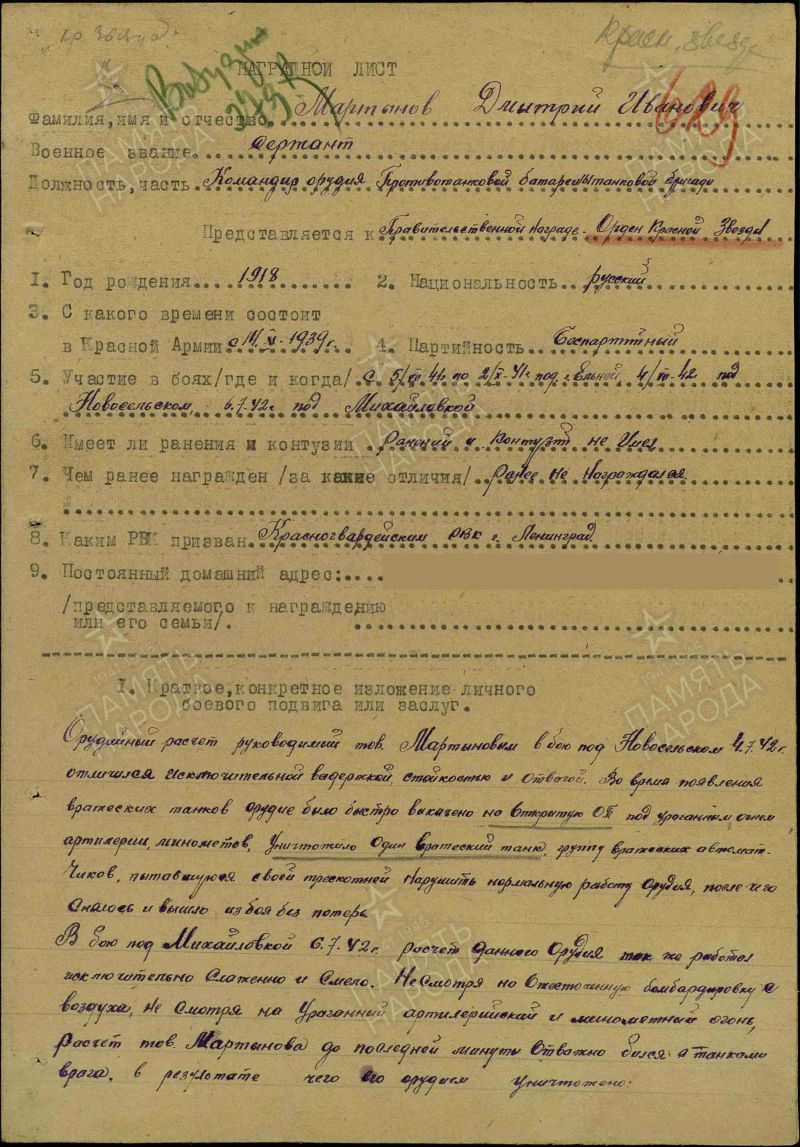 Красн. звезд
НАГРАДНОЙ ЛИСТ
629
Фамилия, имя и отчество. Мартынов Дмитрий Иванович
Военное звание. Сержант
Должность, часть. Командир орудия Противотанковой батареи танковой бригады
Представляется к Правительственной награде - Орден Красной Звезды
1. Год рождения 1918 2. Национальность русский
3. С какого времени состоит
в Красной Армии 1939 г. 4. Партийность Беспартийный
5. Участие в боях/где и когда/ с 5/ 41 по 2/ 41 г под г. Ельней, 4/ 42 под
Новосельском, 6.7.42 г. под Михайловкой
6. Имеет ли ранения и контузии Ранений и контузий не имел
7. Чем ранее награжден /за какие отличия/ Ранее не награждался
8. Каким РВК призван. Красногвардейским РВК г. Ленинград
9. Постоянный домашний адрес:
/представляемого к награждению
или его семьи/.
I. Краткое, конкретное изложение личного
боевого подвига или заслуг.
Орудийный расчет руководимый тов. Мартыновым в бою под Новосельском 4.7.42 г.
отличился исключительной выдержкой, стойкостью и отвагой. Во время появления
вражеских танков орудие было быстро выкачено на открытую ОП под ураганным огнем
артилерии, минометов, уничтожило один вражеский танк, группу вражеских автомат-
чиков, пытавшуюся своей трескотней нарушить нормальную работу орудия, после чего
снялось и вышло из боя без потерь.
В бою под Михайловкой 6.7.42 г. расчет данного орудия так же работал
исключительно слаженно и смело. Не смотря на ожесточенную бомбардировку с
воздуха, не смотря на ураганный артилерийский и минометный огонь,
расчет тов. Мартынова до последней минуты отважно бился с танками
врага, в результате чего его орудием уничтожено:
ПАМЯТЬ НАРОДА